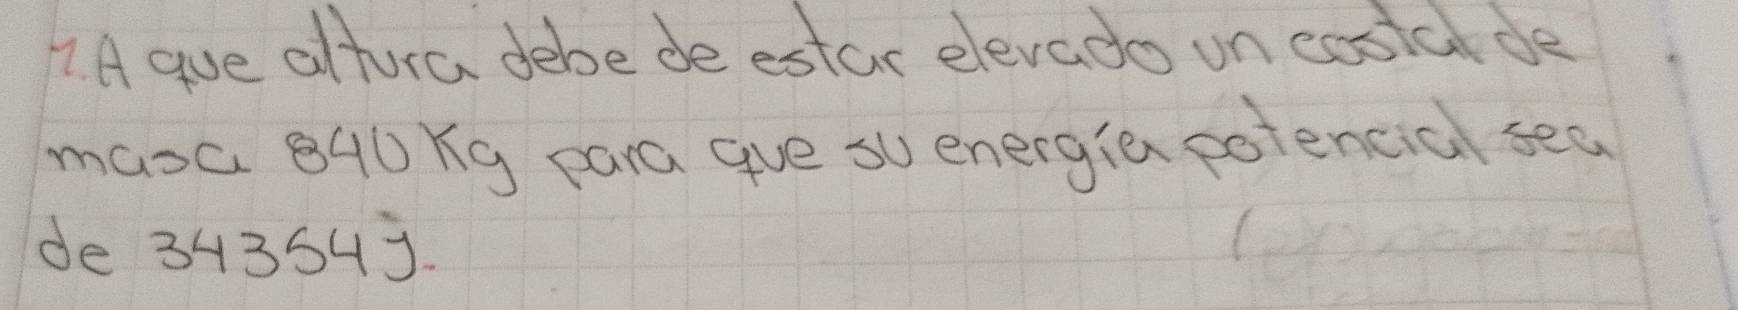 1. A que altura debe de estar elevado un costal de
masa 840 Kg para que su energía potencial sea
de 34354 J.